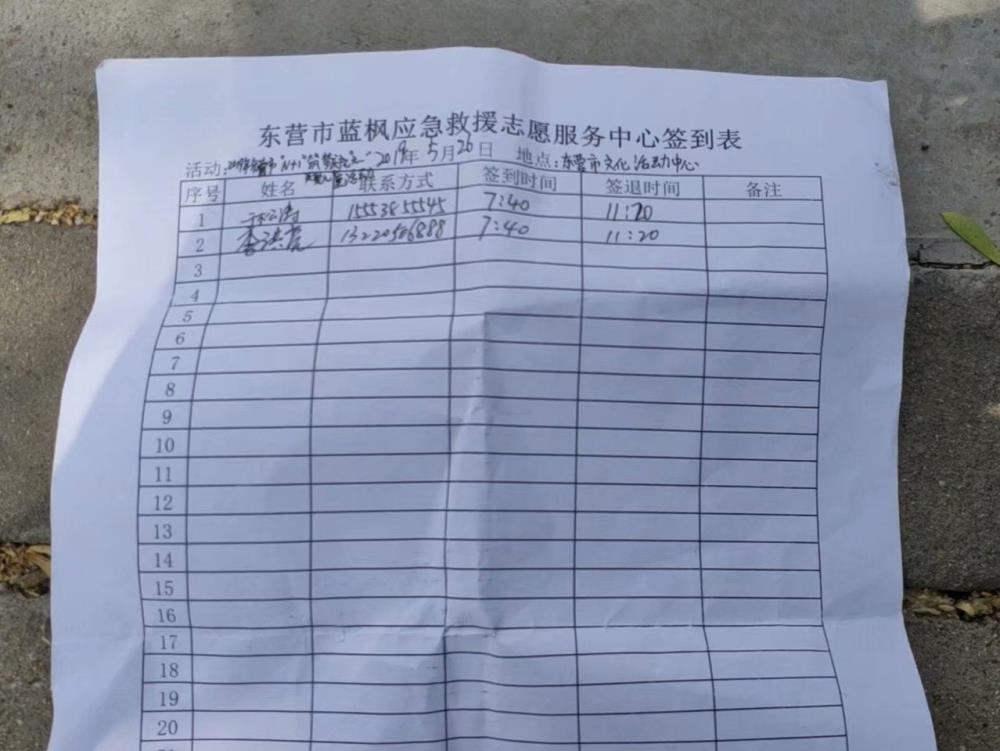 东营市蓝枫应急救援志愿服务中心签到表
活动: 2019年5月26日 地点:东营市文化活动中心
序号 姓名 联系方式 签到时间 签退时间 备注
1 15553855545 7:40 11:20
2 13220506888 7:40 11:20
3
4
5
6
7
8
9
10
11
12
13
14
15
16
17
18
19
20